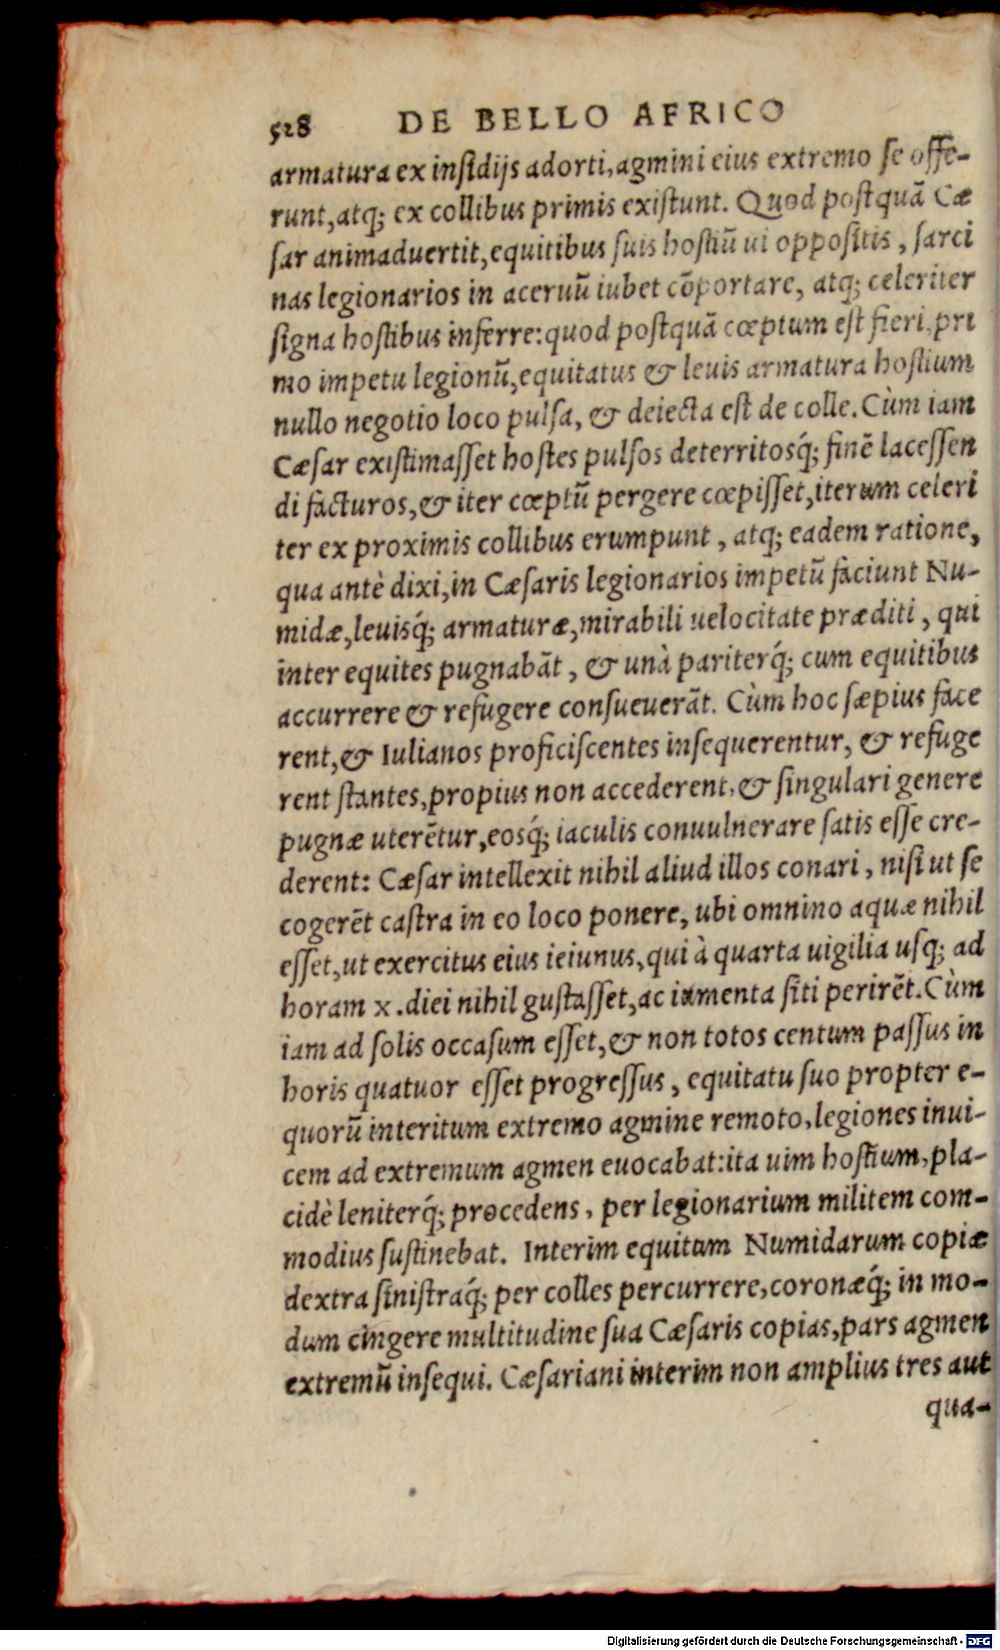 528 DE BELLO AFRICO
armatura ex insidijs adorti, agmini eius extremo se offe-
runt, atq; ex collibus primis existunt. Quod postquã Cæ
sar animaduertit, equitibus suis hostiũ ui oppositis, sarci
nas legionarios in aceruũ iubet cõportare, atq; celeriter
signa hostibus inferre: quod postquã cœptum est fieri, pri
mo impetu legionũ, equitatus & leuis armatura hostium
nullo negotio loco pulsa, & deiecta est de colle. Cùm iam
Cæsar existimasset hostes pulsos deterritosq́; finẽ lacessen
di facturos, & iter cœptũ pergere cœpisset, iterum celeri
ter ex proximis collibus erumpunt, atq; eadem ratione,
qua antè dixi, in Cæsaris legionarios impetũ faciunt Nu-
midæ, leuisq́; armaturæ, mirabili uelocitate præditi, qui
inter equites pugnabãt, & unà pariterq́; cum equitibus
accurrere & refugere consueuerãt. Cùm hoc sæpius face
rent, & Iulianos proficiscentes insequerentur, & refuge
rent stantes, propius non accederent, & singulari genere
pugnæ uterẽtur, eosq́; iaculis conuulnerare satis esse cre-
derent: Cæsar intellexit nihil aliud illos conari, nisi ut se
cogerẽt castra in eo loco ponere, ubi omnino aquæ nihil
esset, ut exercitus eius ieiunus, qui à quarta uigilia usq; ad
horam x. diei nihil gustasset, ac iumenta siti perirẽt. Cùm
iam ad solis occasum esset, & non totos centum passus in
horis quatuor esset progressus, equitatu suo propter e-
quorũ interitum extremo agmine remoto, legiones inui-
cem ad extremum agmen euocabat: ita uim hostium, pla-
cidè leniterq́; procedens, per legionarium militem com-
modius sustinebat. Interim equitum Numidarum copiæ
dextra sinistraq́; per colles percurrere, coronæq́; in mo-
dum cingere multitudine sua Cæsaris copias, pars agmen
extremũ insequi. Cæsariani interim non amplius tres aut
qua-
Digitalisierung gefördert durch die Deutsche Forschungsgemeinschaft - DFG